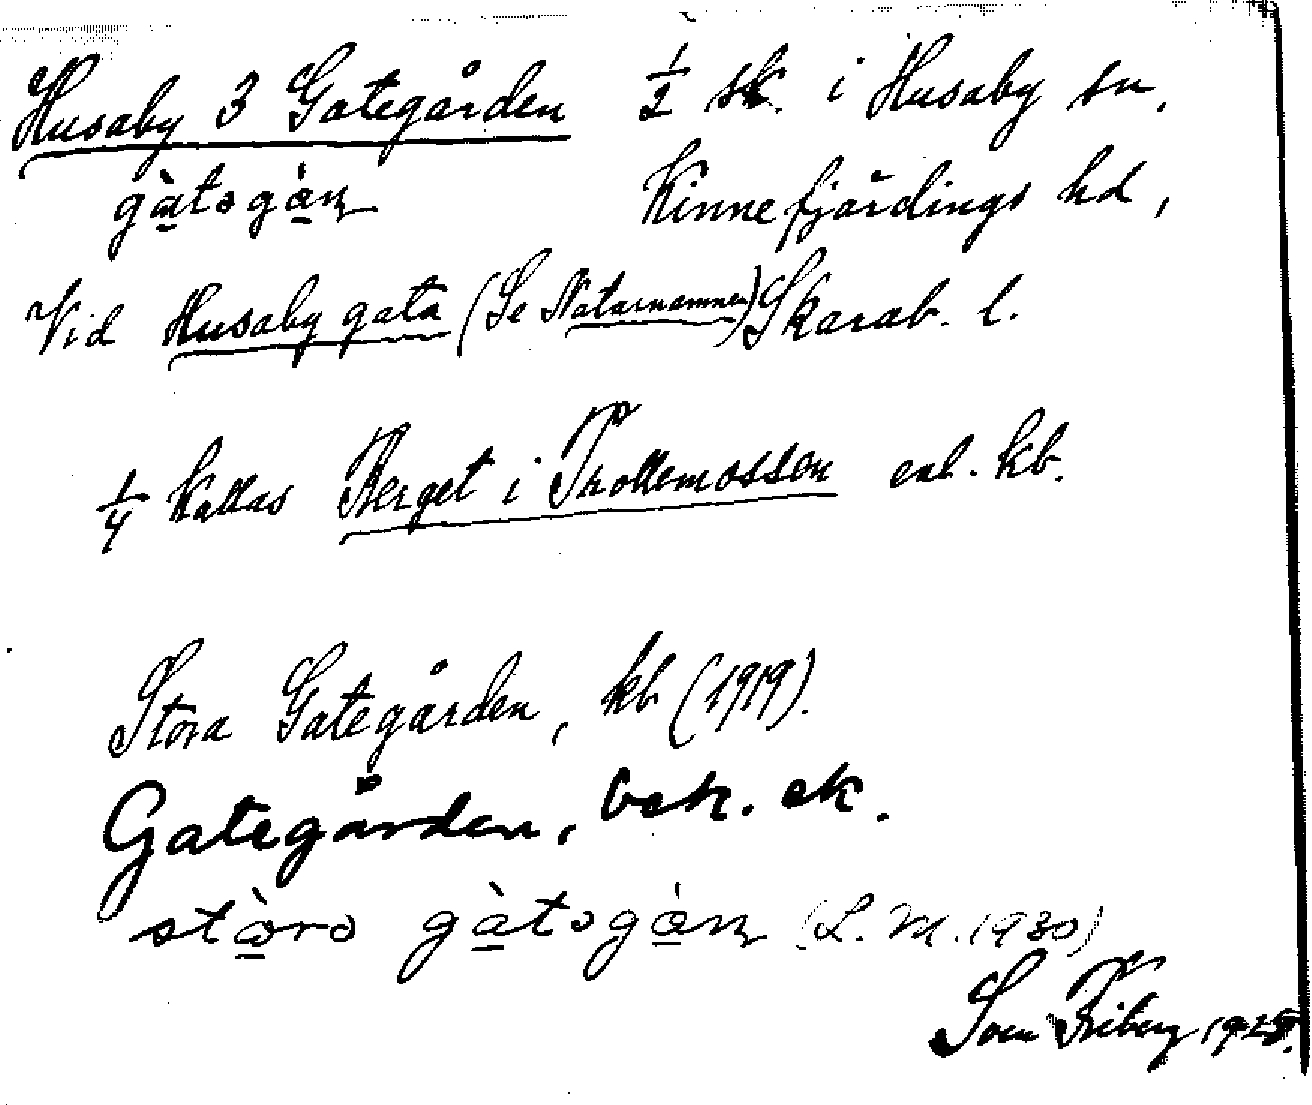 Husaby 3 Gategården ½ sk. i Husaby sn,
gàtəgàɳ Kinnefjärdings hd,
Vid Husaby gata (Se Naturnamnen) Skarab. l.
¼ kallas Berget i Trollemossen enl. kb.
Stora Gategården, kb (1919).
Gategården, bek. ek.
stòrə gàtəgàɳ (L. M. 1930)
Sven Friberg